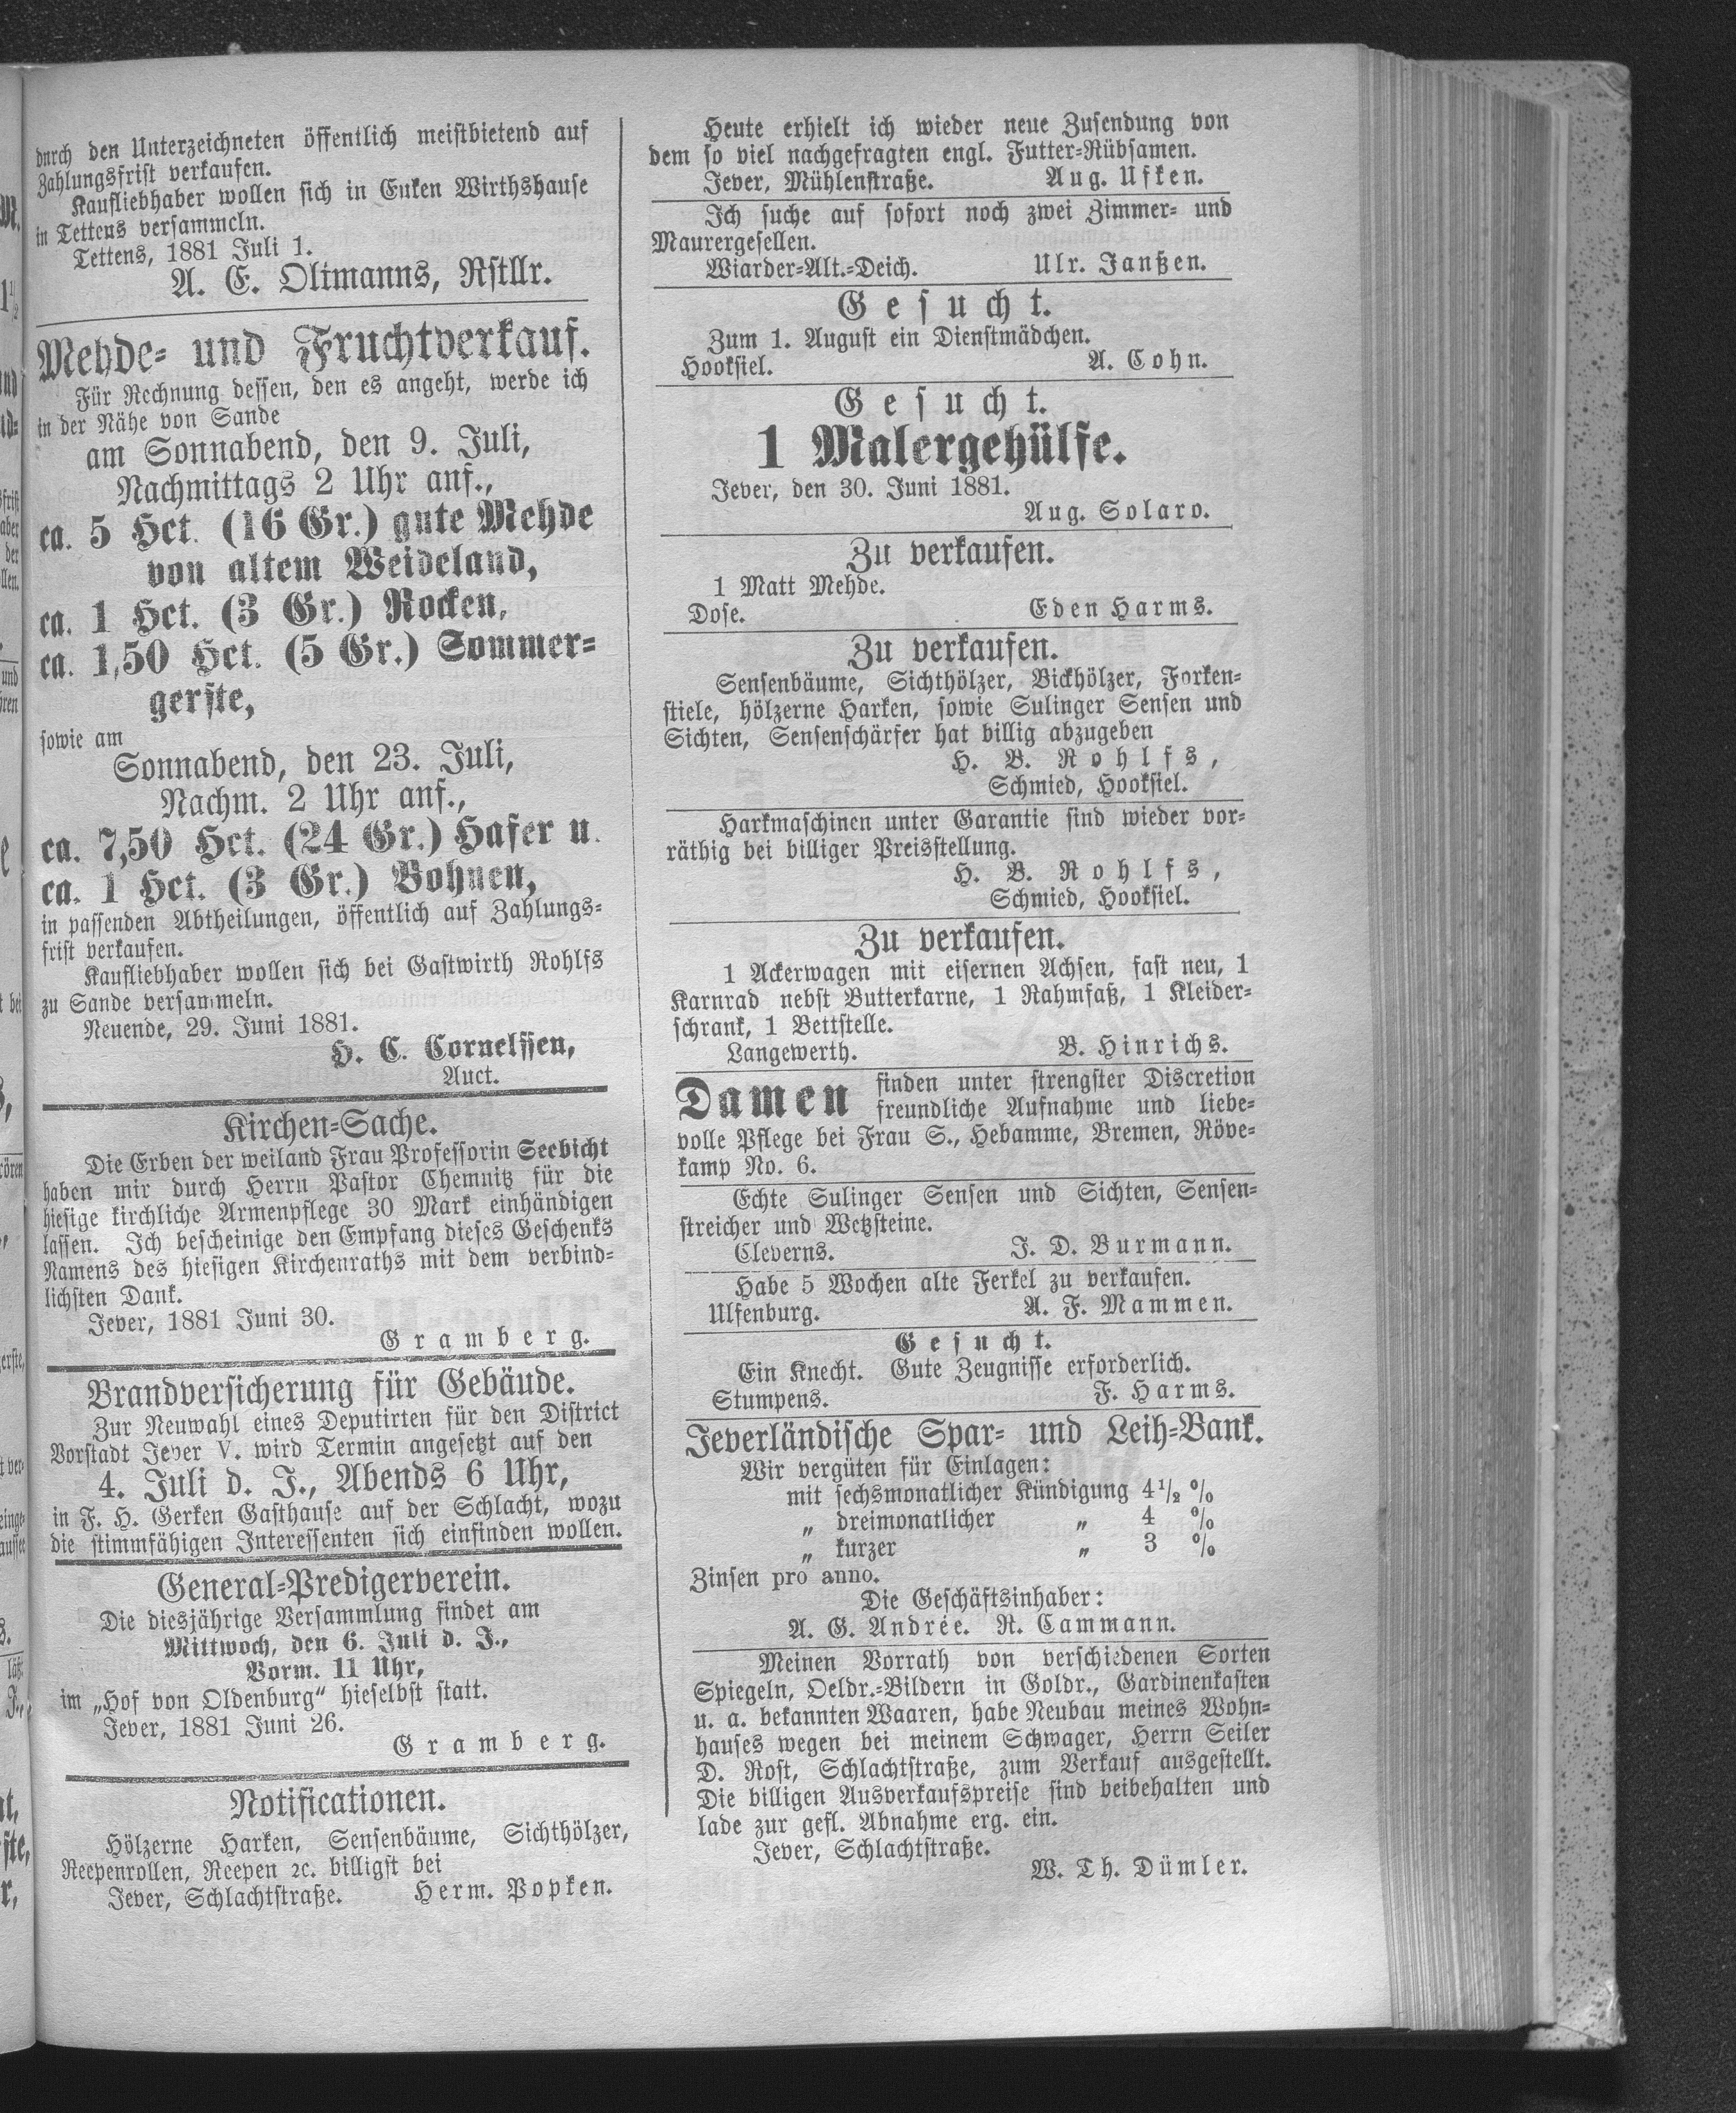 durch den Unterzeichneten öffentlich meistbietend auf
Zahlungsfrist verkaufen.
Kaufliebhaber wollen sich in Euken Wirthshause
in Tettens versammeln.
Tettens, 1881 Juli 1.
A. E. Oltmanns, Rstllr.
Mehde- und Fruchtverkauf.
Für Rechnung dessen, den es angeht, werde ich
in der Nähe von Sande
am Sonnabend, den 9. Juli,
Nachmittags 2 Uhr anf.,
ca. 5 Hct. (16 Gr.) gute Mehde
von altem Weideland,
ca. 1 Hct. (3 Gr.) Rocken,
ca. 1,50 Hct. (5 Gr.) Sommer-
gerste,
sowie am
Sonnabend, den 23. Juli,
Nachm. 2 Uhr anf.,
ca. 7,50 Hct. (24 Gr.) Hafer u.
ca. 1 Hct. (3 Gr.) Bohnen,
in passenden Abtheilungen, öffentlich auf Zahlungs-
frist verkaufen.
Kaufliebhaber wollen sich bei Gastwirth Rohlfs
zu Sande versammeln.
Neuende, 29. Juni 1881.
H. C. Cornelssen,
Auct.
Kirchen-Sache.
Die Erben der weiland Frau Professorin Seebicht
haben mir durch Herrn Pastor Chemnitz für die
hiesige kirchliche Armenpflege 30 Mark einhändigen
lassen. Ich bescheinige den Empfang dieses Geschenks
Namens des hiesigen Kirchenraths mit dem verbind-
lichsten Dank.
Jever, 1881 Juni 30.
Gramberg.
Brandversicherung für Gebäude.
Zur Neuwahl eines Deputirten für den District
Vorstadt Jever V. wird Termin angesetzt auf den
4. Juli d. J., Abends 6 Uhr,
in F. H. Gerken Gasthause auf der Schlacht, wozu
die stimmfähigen Interessenten sich einfinden wollen.
General-Predigerverein.
Die diesjährige Versammlung findet am
Mittwoch, den 6. Juli d. J.,
Vorm. 11 Uhr,
im „Hof von Oldenburg“ hieselbst statt.
Jever, 1881 Juni 26.
Gramberg.
Notificationen.
Hölzerne Harken, Sensenbäume, Sichthölzer,
Reepenrollen, Reepen ꝛc. billigst bei
Jever, Schlachtstraße. Herm. Popken.
Heute erhielt ich wieder neue Zusendung von
dem so viel nachgefragten engl. Futter-Rübsamen.
Jever, Mühlenstraße. Aug. Ufken.
Ich suche auf sofort noch zwei Zimmer- und
Maurergesellen.
Wiarder-Alt.-Deich. Ulr. Janßen.
Gesucht.
Zum 1. August ein Dienstmädchen.
Hooksiel. A. Cohn.
Gesucht.
1 Malergehülfe.
Jever, den 30. Juni 1881.
Aug. Solaro.
Zu verkaufen.
1 Matt Mehde.
Dose. Eden Harms.
Zu verkaufen.
Sensenbäume, Sichthölzer, Bickhölzer, Forken-
stiele, hölzerne Harken, sowie Sulinger Sensen und
Sichten, Sensenschärfer hat billig abzugeben
H. B. Rohlfs,
Schmied, Hooksiel.
Harkmaschinen unter Garantie sind wieder vor-
räthig bei billiger Preisstellung.
H. B. Rohlfs,
Schmied, Hooksiel.
Zu verkaufen.
1 Ackerwagen mit eisernen Achsen, fast neu, 1
Karnrad nebst Butterkarne, 1 Rahmfaß, 1 Kleider-
schrank, 1 Bettstelle.
Langewerth. B. Hinrichs.
Damen finden unter strengster Discretion
freundliche Aufnahme und liebe-
volle Pflege bei Frau S., Hebamme, Bremen, Röve-
kamp No. 6.
Echte Sulinger Sensen und Sichten, Sensen-
streicher und Wetzsteine.
Cleverns. J. D. Burmann.
Habe 5 Wochen alte Ferkel zu verkaufen.
Ulfenburg. A. F. Mammen.
Gesucht.
Ein Knecht. Gute Zeugnisse erforderlich.
Stumpens. F. Harms.
Jeverländische Spar- und Leih-Bank.
Wir vergüten für Einlagen:
mit sechsmonatlicher Kündigung 4½ %
„ dreimonatlicher „ 4 %
„ kurzer „ 3 %
Zinsen pro anno.
Die Geschäftsinhaber:
A. G. Andrée. R. Cammann.
Meinen Vorrath von verschiedenen Sorten
Spiegeln, Oeldr.-Bildern in Goldr., Gardinenkasten
u. a. bekannten Waaren, habe Neubau meines Wohn-
hauses wegen bei meinem Schwager, Herrn Seiler
D. Rost, Schlachtstraße, zum Verkauf ausgestellt.
Die billigen Ausverkaufspreise sind beibehalten und
lade zur gefl. Abnahme erg. ein.
Jever, Schlachtstraße.
W. Th. Dümler.